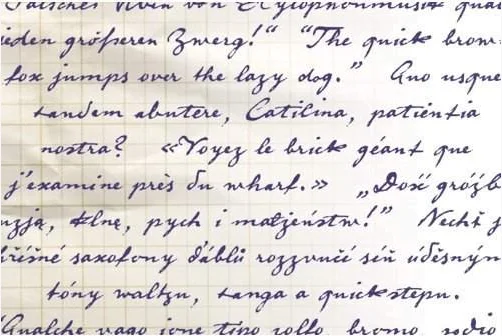 Falsches Üben von Xylophonmusik quä
ieden größeren Zwerg!“ “The quick brow
fox jumps over the lazy dog.” Quo usque
tandem abutere, Catilina, patientia
nostra? «Voyez le brick géant que
j'examine près du wharf.» „Dość gróźb
uzją, klnę, pych i małżeństw!” Nechť j
hříšné saxofony ďáblů rozzvučí síň úděsným
tóny waltzu, tanga a quickstepu.
“Qualche vago ione tipo zolfo, bromo, sodio